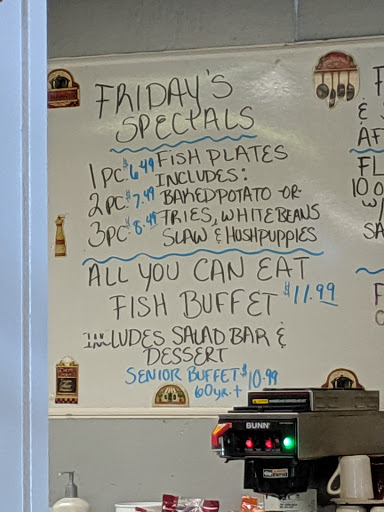 FRIDAY'S
SPECIALS
1PC $6.49 FISH PLATES
INCLUDES:
2PC $7.49 BAKED POTATO OR
3PC $8.49 FRIES, WHITE BEANS
SLAW & HUSHPUPPIES
ALL YOU CAN EAT
FISH BUFFET $11.99
INCLUDES SALAD BAR &
DESSERT
SENIOR BUFFET $10.99
60yr. +
F
&
AF
FL
10 O
w/
SA
BUNN